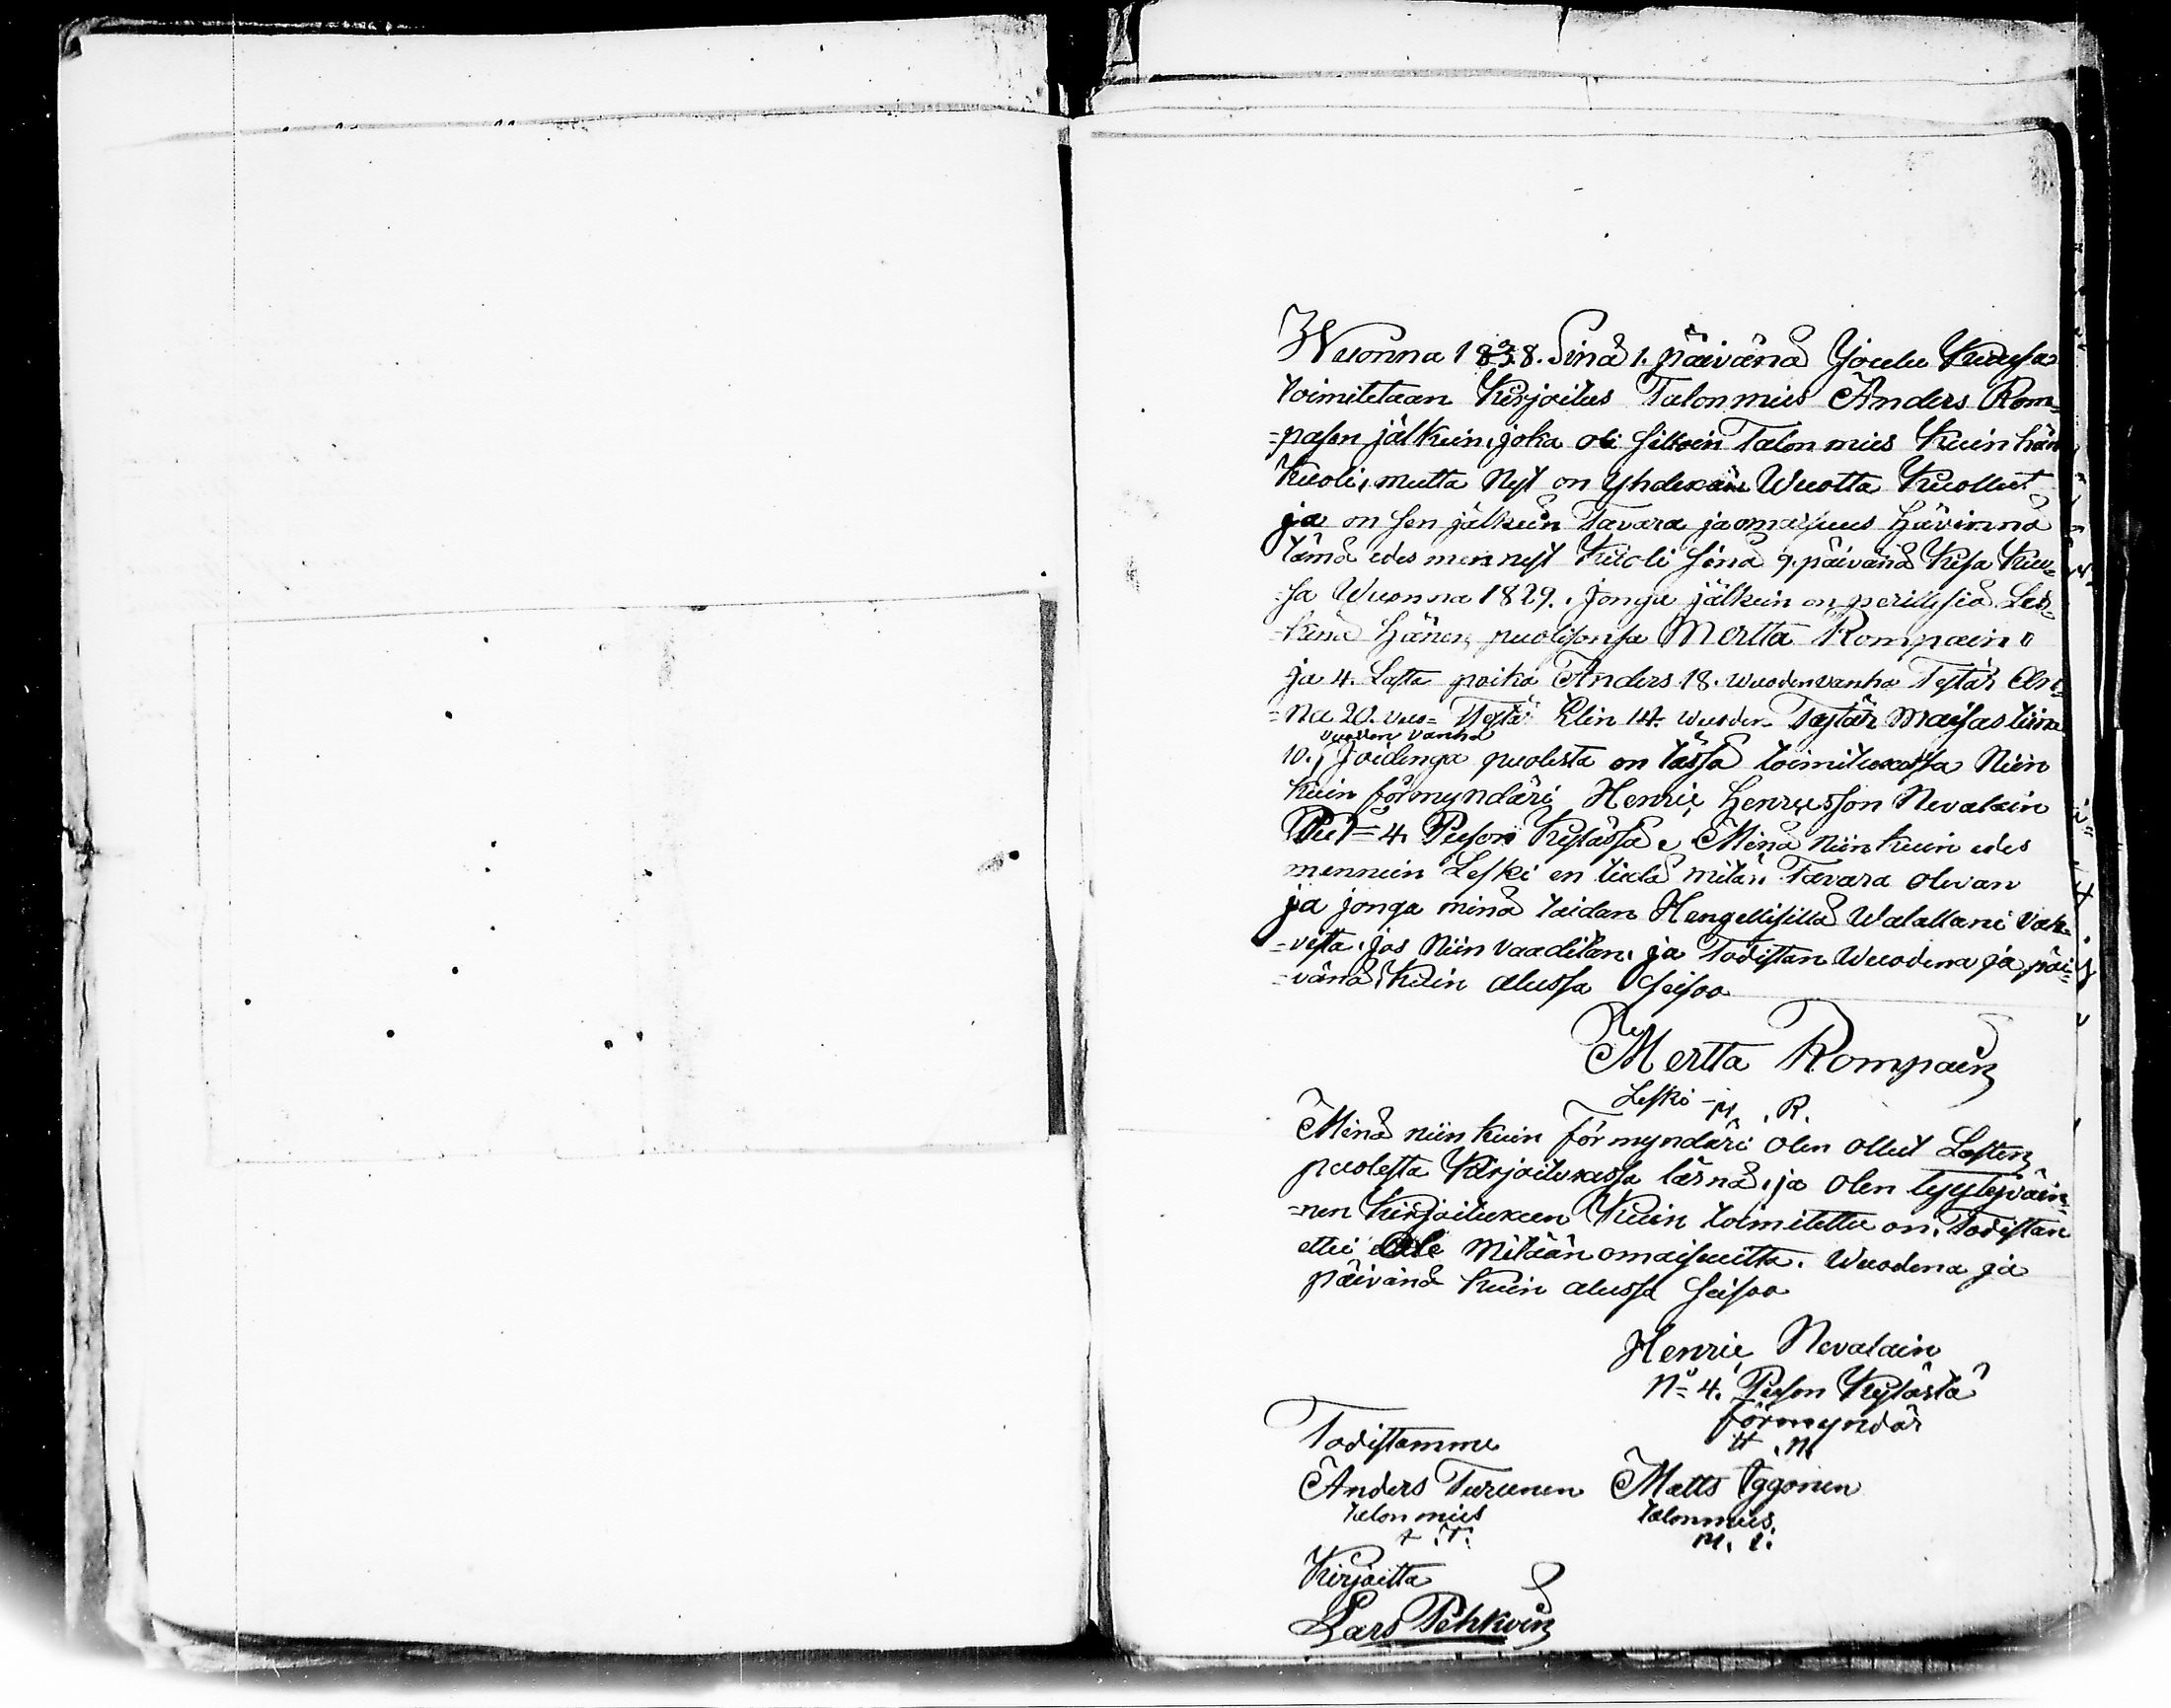 Wuonna 1838. Sinä 1. päivänä Joulu Kuusa
toimitetaan Kirjoitus Talonmies Anders Rom=
=pasen jälkein, joka oli silloin Talon mies kuin hän
Kuoli, mutta Nyt on Yhdexän Wuotta Kuollut
ja on sen jälkein Tavara ja omaisuus hävinnä
tämä edes mennyt Kuoli sinä 9. päivänä Kesa Kuu=
=sa Wuonna 1829. Jonga jälkein on perillisiä Les=
=kenä hänen puolisonsa Mertta Rompain
ja 4. Lasta poika Anders 18. wuoden vanha Tytär An=
=na 20. vuo= Tytär Elin 14. wuoden Tytär Maijastina
vuoden vanha
10. Joidenga puolesta on tässä toimituxessa Niin
kuin förmyndäri Henric Henricsson Nevalain
No 4. Puson Kylässä, Minä niinkuin edes
mennein Leski en tiedä mitän Tavara olevan
ja jonga minä taidan Hengellisellä Walallani vah=
=vista, jos Niin vaaditan, ja Todistan Wuodena ja päi=
=vänä kuin alussa seisoo
Mertta Rompain
Leski M. R.
Minä niinkuin förmyndäri Olen ollut Lasten
puolesta Kirjoituxessa läsnä, ja Olen tyytyväi=
=nen Kirjoituxeen Kuin toimitettu on, Todistan
ettei Ole Mitään omaisuutta. Wuodena ja
päivänä kuin alussa seisoo
Henric Nevalain
No 4. Puson Kylästä
förmyndär
H. N.
Todistamme
Anders Turunen Matts Iggonen
talon mies talonmies
A. T. M. I.
Kirjoitta
Lars Pehkoin